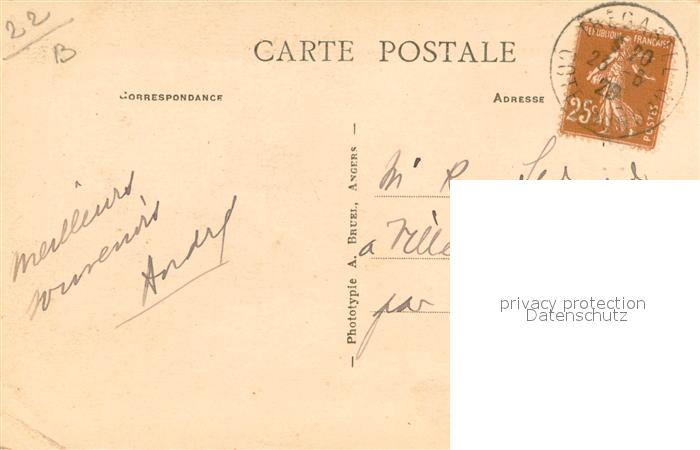 22
B
CARTE POSTALE
CORRESPONDANCE
ADRESSE
RÉPUBLIQUE FRANÇAISE
25c
POSTES
Meilleurs
souvenirs
André
Phototypie A. Bruel, Angers
Mr R.
a Ville
par
privacy protection
Datenschutz